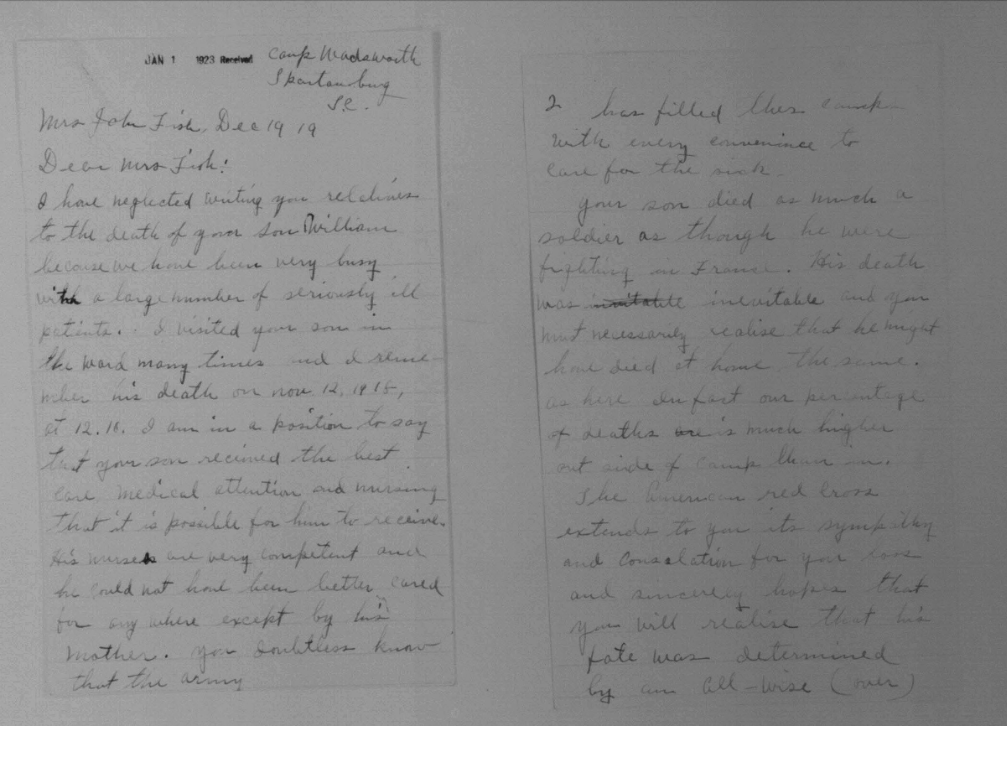 JAN 1 1923 Received
Camp Wadsworth
Spartanburg
S.C.
Mrs John Fish. Dec 19 19
Dear Mrs Fish:
I have neglected writing you relative
to the death of your son William
because we have been very busy
with a large number of seriously ill
patients. I visited your son in
the ward many times and I reme-
mber his death on nov. 12, 1918,
at 12.10. I am in a position to say
that your son received the best
care medical attention and nursing
that it is possible for him to receive.
His nurses are very competent and
he could not have been better cared
for any where except by his
mother. you doubtless know
that the army
2 has filled this camp
with every convenince to
care for the sick.
your son died as much a
soldier as though he were
fighting in France. His death
was inevitable and you
must necessarily realise that he might
have died at home the same.
as here In fact our percentage
of deaths are is much higher
out side of camp than in.
The American red Cross
extends to you its sympathy
and consolation for your loss
and sincerely hopes that
you will realise that his
fate was determined
by an all-wise (over)